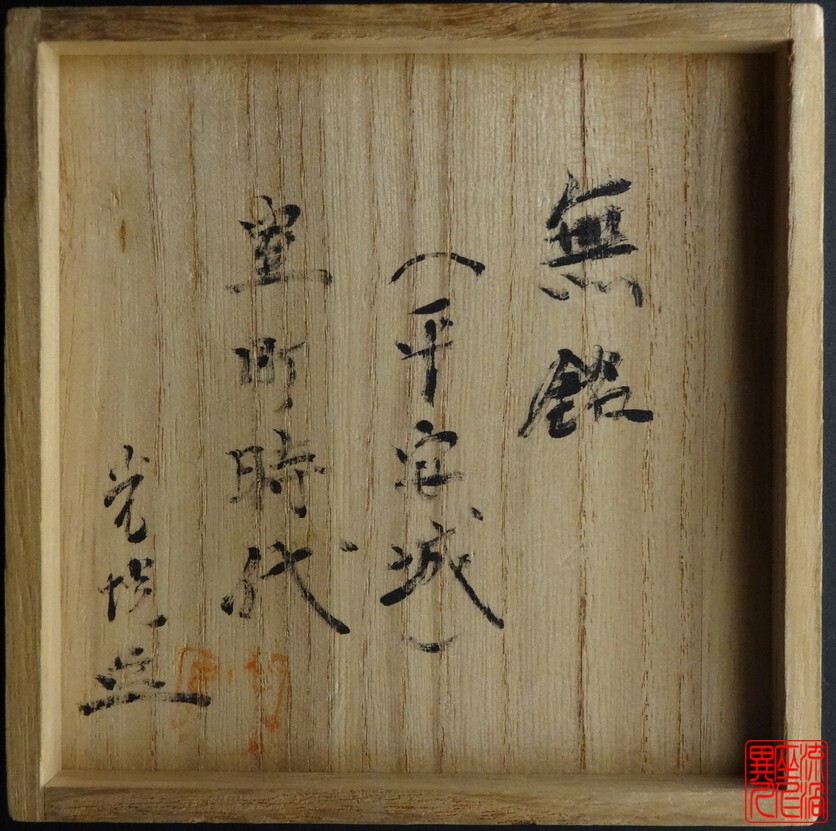 無銘
（平安城）
室町時代
光悦